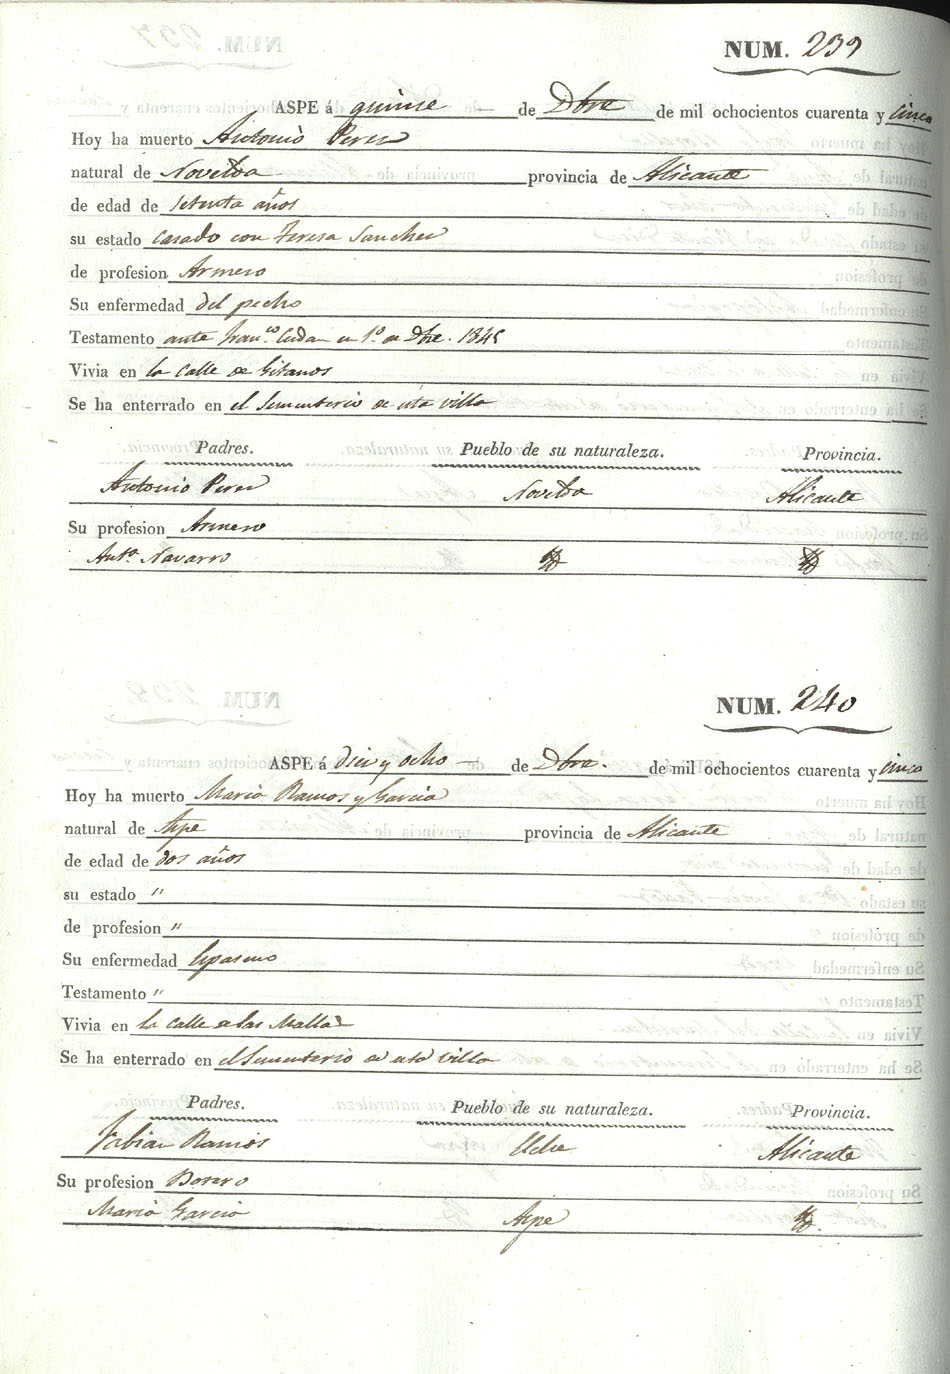 NUM. 239
ASPE á quinse de Dbre de mil ochocientos cuarenta y cinco
Hoy ha muerto Antonio Perez
natural de Novelda provincia de Alicante
de edad de setenta años
su estado casado con Teresa Sanchez
de profesion Armero
Su enfermedad del pecho
Testamento ante Fran.co en 1.º de Dbre. 1845
Vivia en la calle de Gitanos
Se ha enterrado en el Sementerio de esta villa
Padres. Pueblo de su naturaleza. Provincia.
Antonio Perez Novelda Alicante
Su profesion Armero
Ant.a Navarro Yd Yd
NUM. 240
ASPE á diez y ocho de Dbre. de mil ochocientos cuarenta y cinco
Hoy ha muerto Maria Ramos y Garcia
natural de Aspe provincia de Alicante
de edad de dos años
su estado "
de profesion "
Su enfermedad Espasmo
Testamento "
Vivia en la calle de las Mallas
Se ha enterrado en el Sementerio de esta villa
Padres. Pueblo de su naturaleza. Provincia.
Fabian Ramos Elche Alicante
Su profesion
Maria Garcia Aspe Yd.